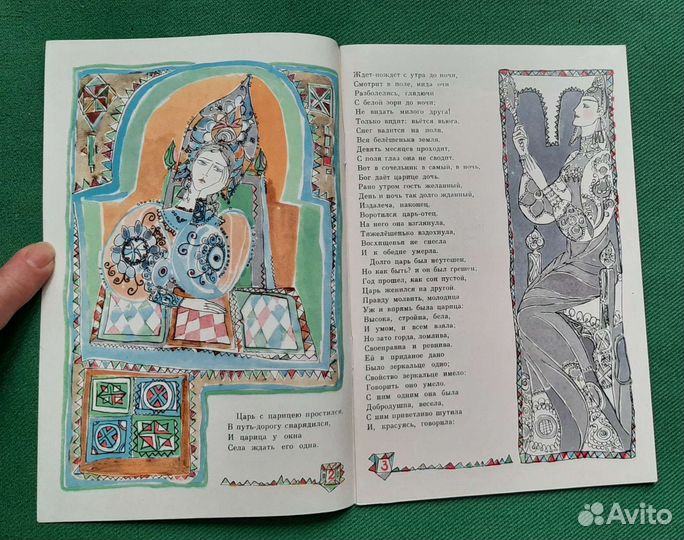 Царь с царицею простился,
В путь-дорогу снарядился,
И царица у окна
Села ждать его одна.
2
Ждёт-пождёт с утра до ночи,
Смотрит в поле, инда очи
Разболелись, глядючи
С белой зори до ночи;
Не видать милого друга!
Только видит: вьётся вьюга,
Снег валится на поля,
Вся белёшенька земля.
Девять месяцев проходит,
С поля глаз она не сводит.
Вот в сочельник в самый, в ночь,
Бог даёт царице дочь.
Рано утром гость желанный,
День и ночь так долго жданный,
Издалеча, наконец,
Воротился царь-отец.
На него она взглянула,
Тяжелёшенько вздохнула,
Восхищенья не снесла
И к обедне умерла.
Долго царь был неутешен,
Но как быть? и он был грешен;
Год прошел, как сон пустой,
Царь женился на другой.
Правду молвить, молодица
Уж и впрямь была царица:
Высока, стройна, бела,
И умом, и всем взяла;
Но зато горда, ломлива,
Своенравна и ревнива.
Ей в приданое дано
Было зеркальце одно;
Свойство зеркальце имело:
Говорить оно умело.
С ним одним она была
Добродушна, весела,
С ним приветливо шутила
И, красуясь, говорила:
3
Avito